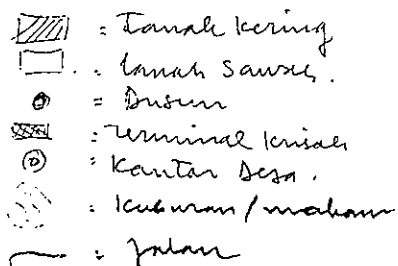 : Tanah Kering
: Tanah Sawah.
= Dusun
: Terminal krisak
: Kantor Desa.
: Kuburan/makam
: Jalan